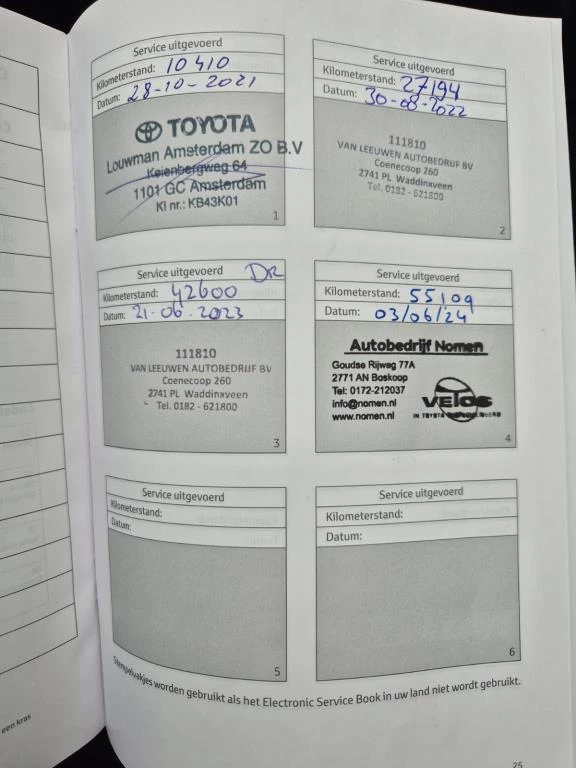 Service uitgevoerd
Kilometerstand: 10410
Datum: 28-10-2021
TOYOTA
Louwman Amsterdam ZO B.V
Keienbergweg 64
1101 GC Amsterdam
Kl nr.: KB43K01
1
Service uitgevoerd
Kilometerstand: 27194
Datum: 30-08-2022
111810
VAN LEEUWEN AUTOBEDRIJF BV
Coenecoop 260
2741 PL Waddinxveen
Tel. 0182 - 621800
2
Service uitgevoerd DR
Kilometerstand: 42600
Datum: 21-06-2023
111810
VAN LEEUWEN AUTOBEDRIJF BV
Coenecoop 260
2741 PL Waddinxveen
Tel. 0182 - 621800
3
Service uitgevoerd
Kilometerstand: 55109
Datum: 03/06/24
Autobedrijf Nomen
Goudse Rijweg 77A
2771 AN Boskoop
Tel: 0172-212037
info@nomen.nl
www.nomen.nl
VETOS
IN TOYOTA
4
Service uitgevoerd
Kilometerstand:
Datum:
5
Service uitgevoerd
Kilometerstand:
Datum:
6
Stempelvakjes worden gebruikt als het Electronic Service Book in uw land niet wordt gebruikt.
een kras
25